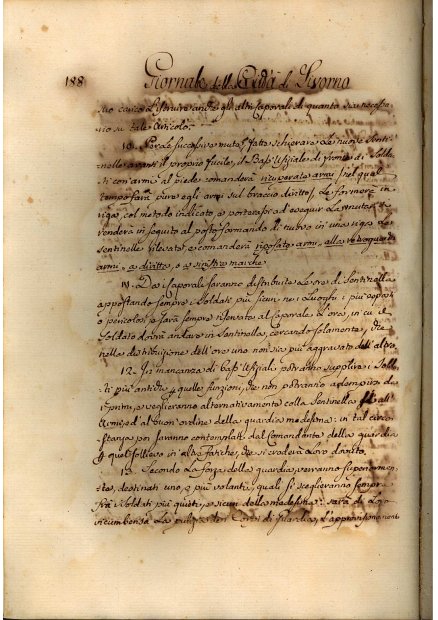 188 Giornale della Città di Livorno
suo carico d'istruire anche gli altri Caporali di quanto sia necessa-
rio su tale Articolo.
10. Per le successive mute, fatte schierare le nuove Senti-
nelle avanti il proprio fucile, il Bass' Ufiziale di fronte ai Solda-
ti con armi al piede comanderà ricuperate armi, nel qual
tempo farà pure egli armi sul braccio diritto, le formerà in
riga, col metodo indicato, e portensi ad eseguir la muta, e
renderà in seguito al posto formando di nuovo in una riga le
sentinelle rilevate, e comanderà riposate armi, alla
armi, a diritta, o a sinistra marche.
11. Da i Caporali saranno distribuite le ore di Sentinella
appostando sempre i Soldati più sicuri nei Luoghi i più
o pericolosi, e sarà sempre riservata al Caporale l'ora, in cui il
Soldato dovrà andare in Sentinella, cercando solamente, che
nella distribuzione dell'ore uno non sia più aggravato dell'altro.
12. In mancanza di Bass' Ufiziali potranno supplire i Solda-
ti più antichi a quelle funzioni, che non potranno adempire da
, e veglieranno alternativamente colla Sentinella all'
Armi, ed al buon ordine della guardia medesima: in tal circo-
stanza poi saranno contemplati dal Comandante della guardia
quel sollievo in altre fatiche, che si crederà loro dovuto.
13. Secondo la forza della guardia verranno superiormen-
te, destinati uno, o più volanti, quali si sceglieranno sempre
frà i Soldati più quieti, e sicuri della medesima: sarà di loro
incumbenza la pulizia dei Corpi di Guardia, l'approvisionamen-